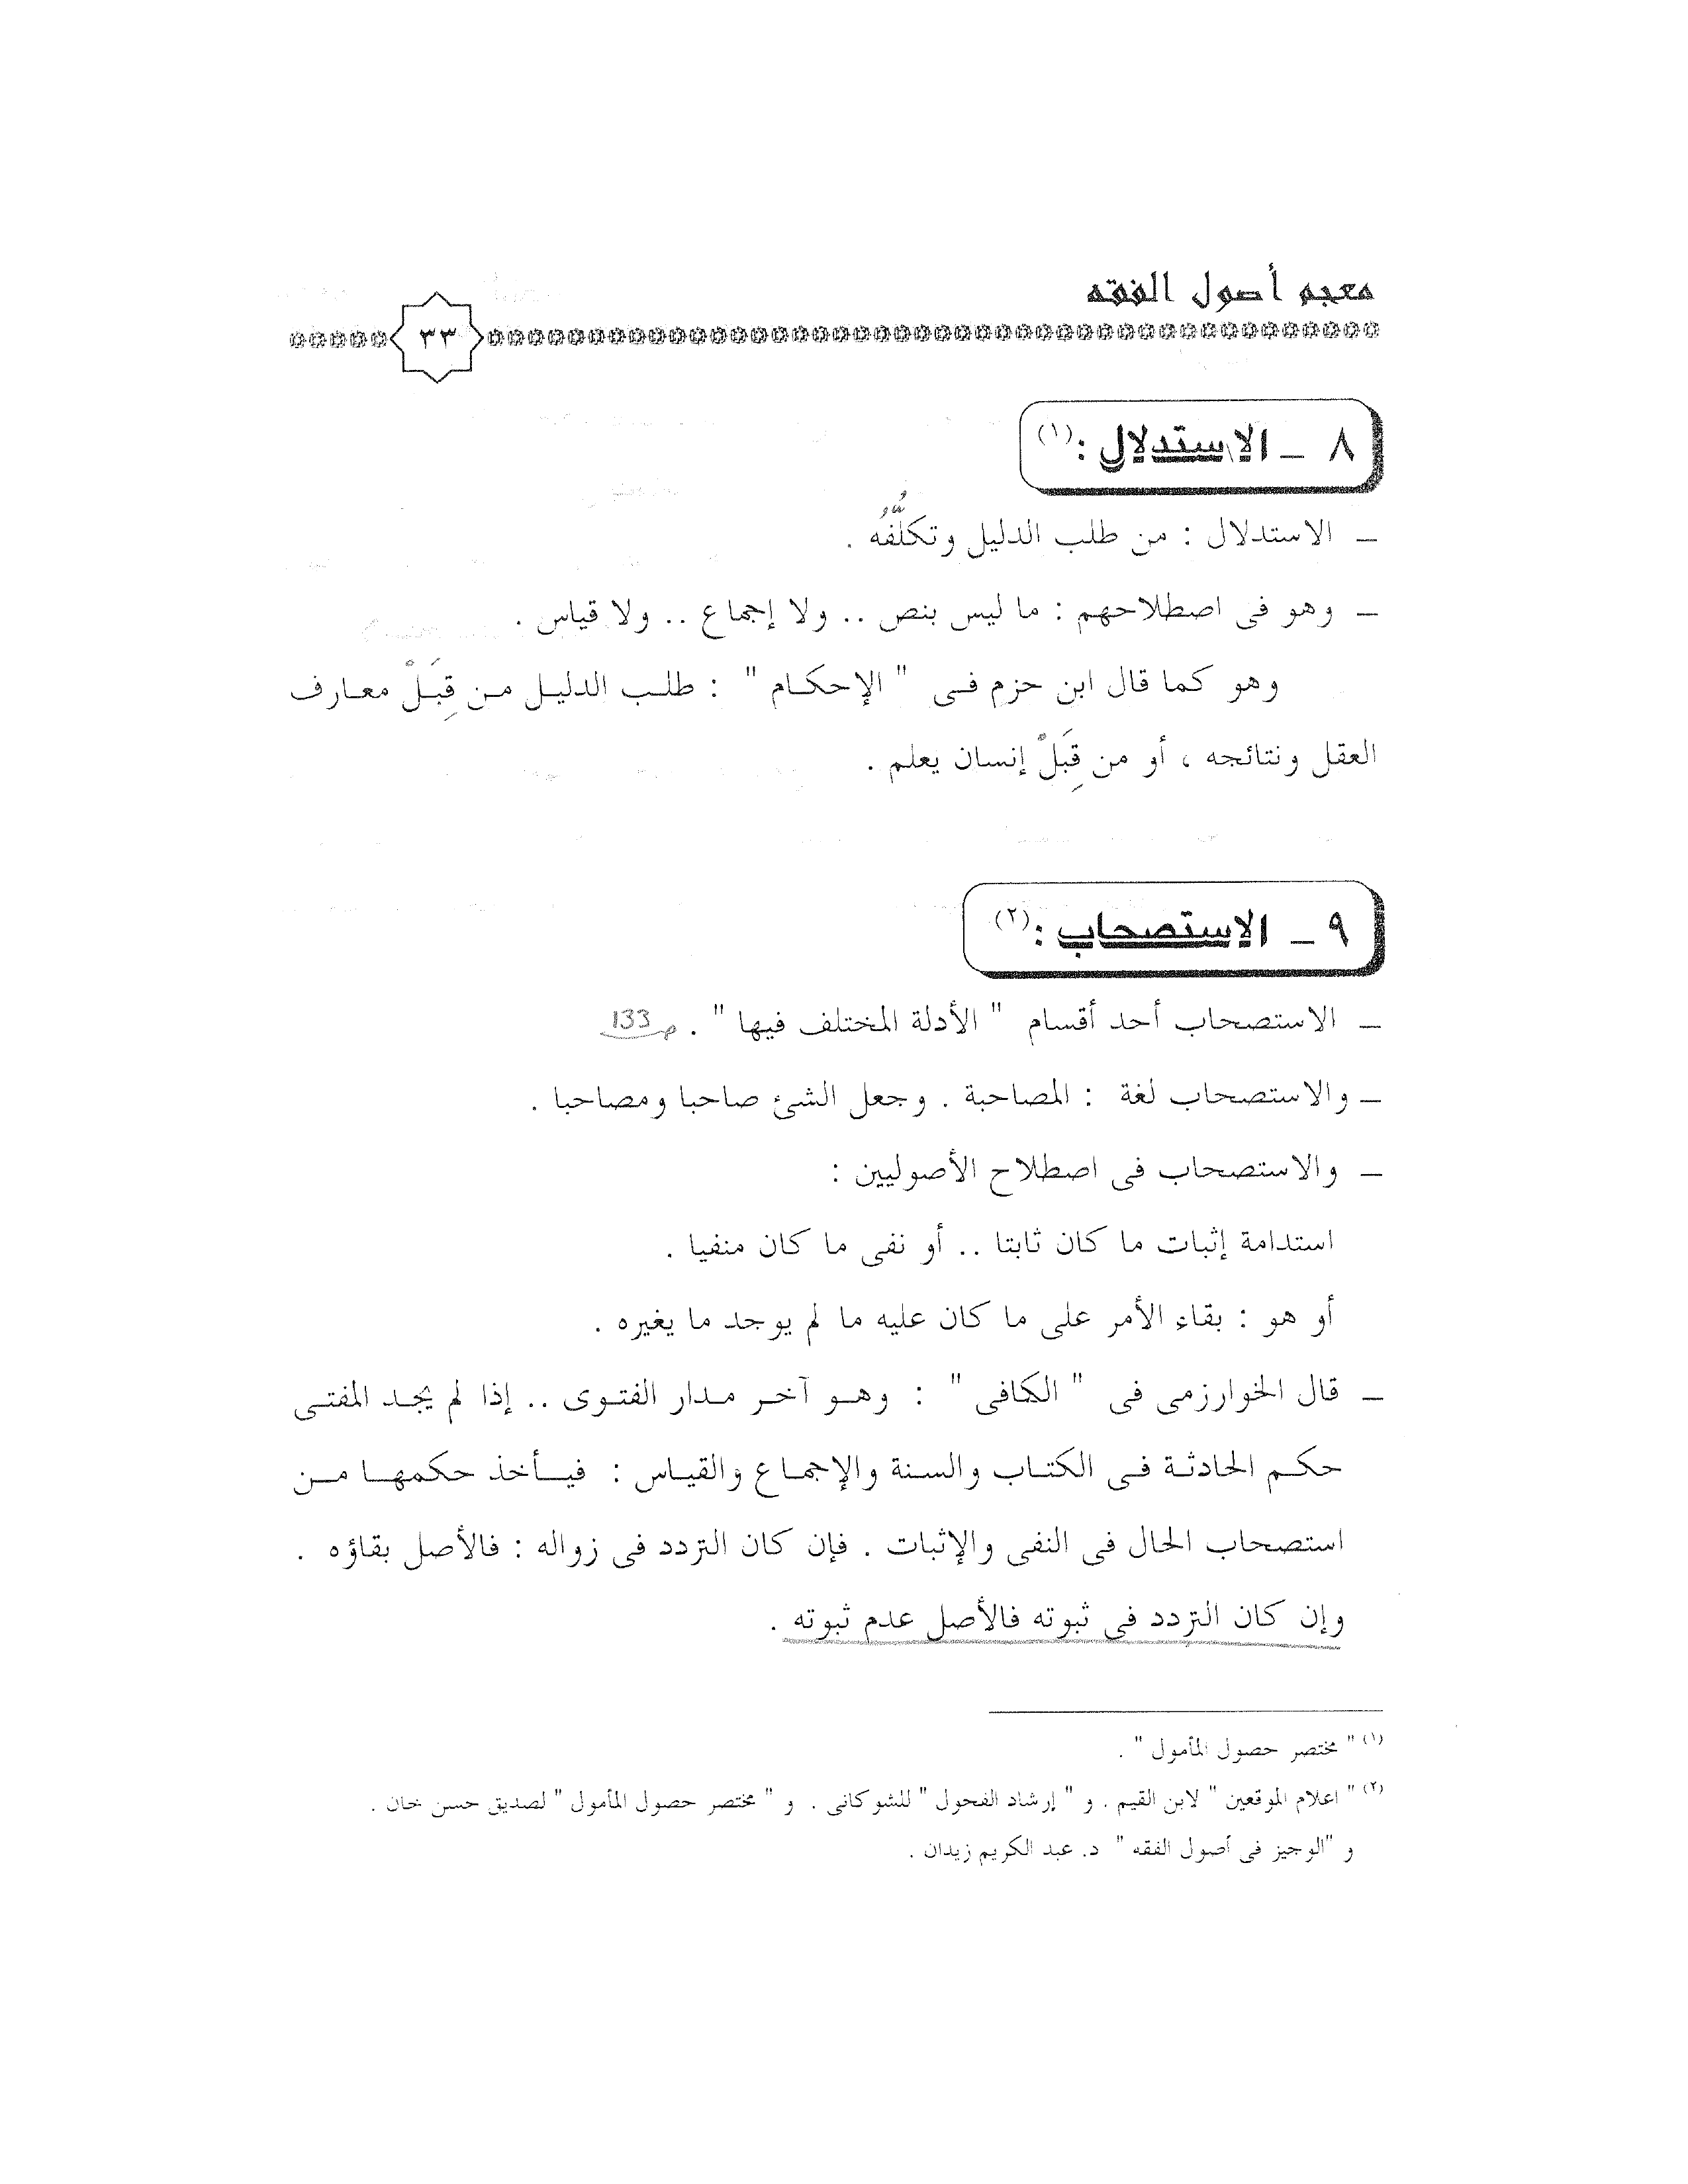 معجم أصول الفقه
٣٣
٨ ـ الاستدلال : (١)
ـ الاستدلال : من طلب الدليل وتكلُّفُه .
ـ وهو فى اصطلاحهم : ما ليس بنص .. ولا إجماع .. ولا قياس .
وهو كما قال ابن حزم فى " الإحكام " : طلب الدليل من قِبَلْ معارف
العقل ونتائجه ، أو من قِبَلْ إنسان يعلم .
٩ ـ الاستصحاب : (٢)
ـ الاستصحاب أحد أقسام " الأدلة المختلف فيها " . ص 133
ـ والاستصحاب لغة : المصاحبة . وجعل الشئ صاحبا ومصاحبا .
ـ والاستصحاب فى اصطلاح الأصوليين :
استدامة إثبات ما كان ثابتا .. أو نفى ما كان منفيا .
أو هو : بقاء الأمر على ما كان عليه ما لم يوجد ما يغيره .
ـ قال الخوارزمى فى " الكافى " : وهو آخر مدار الفتوى .. إذا لم يجد المفتى
حكم الحادثة فى الكتاب والسنة والإجماع والقياس : فيأخذ حكمها من
استصحاب الحال فى النفى والإثبات . فإن كان التردد فى زواله : فالأصل بقاؤه .
وإن كان التردد فى ثبوته فالأصل عدم ثبوته .
(١) " مختصر حصول المأمول " .
(٢) " اعلام الموقعين " لابن القيم . و " إرشاد الفحول " للشوكانى . و " مختصر حصول المأمول " لصديق حسن خان .
و "الوجيز فى أصول الفقه " د. عبد الكريم زيدان .